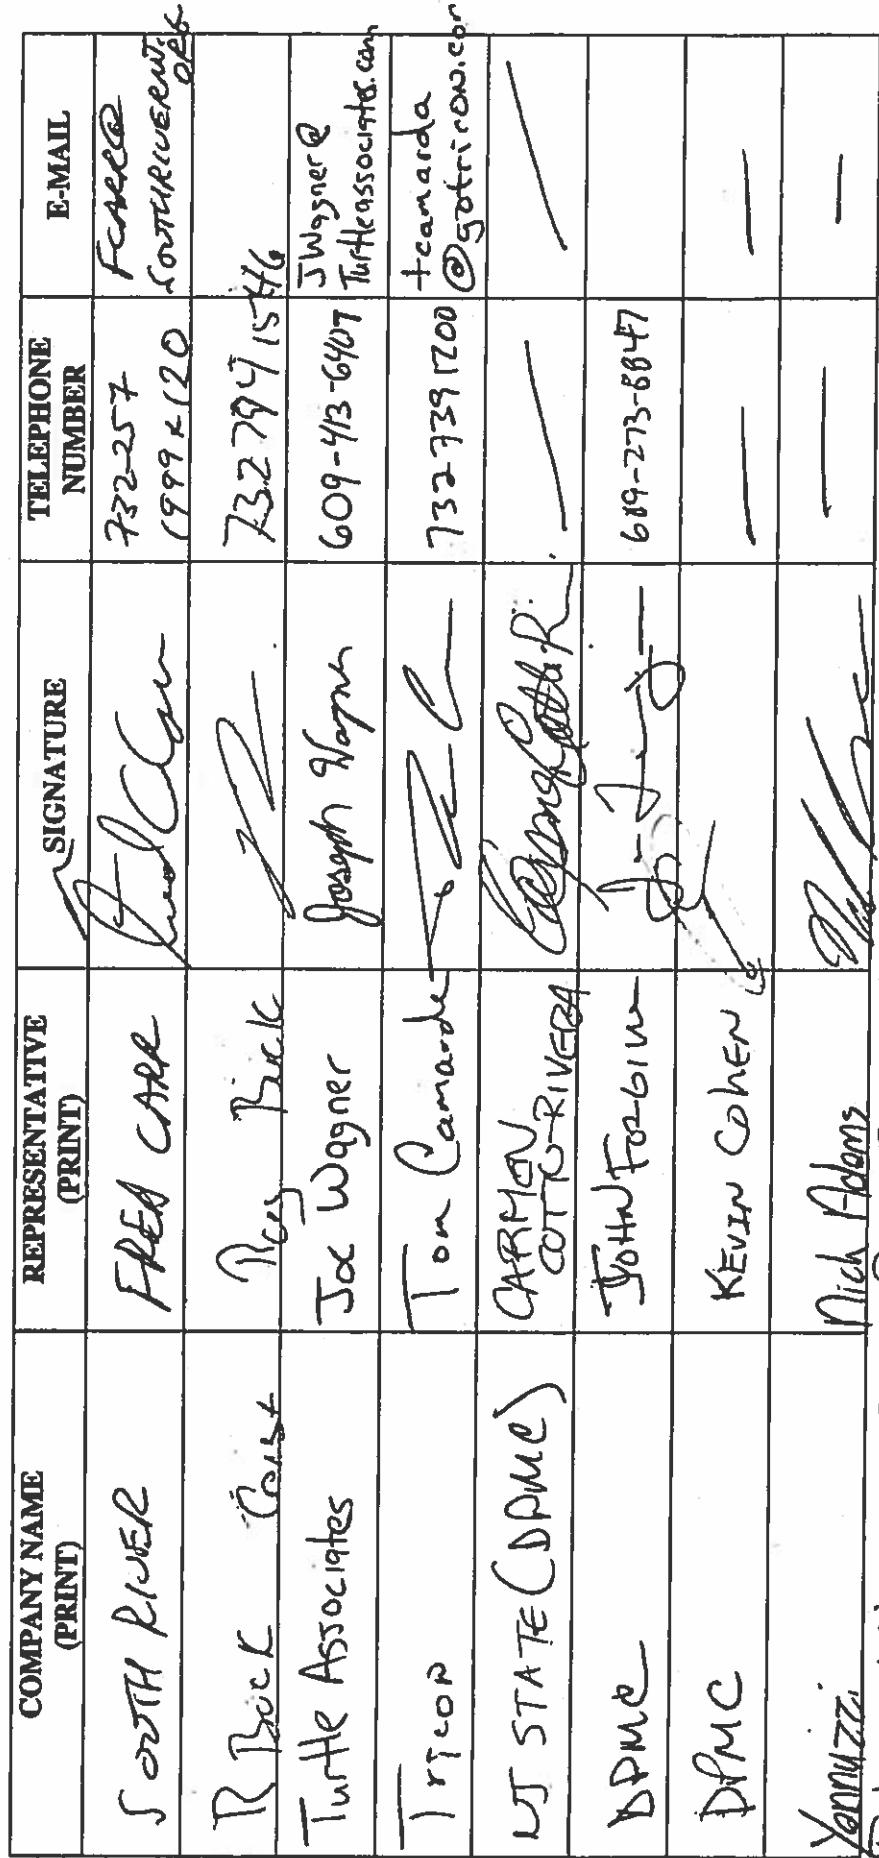 COMPANY NAME (PRINT) REPRESENTATIVE (PRINT) SIGNATURE TELEPHONE NUMBER E-MAIL
SOUTH RIVER FRED CARR 732-257 1999 x 120 FCARR@ SOUTHRIVERNJ. ORG
R Bick Const Roy Bick 732 794 1546
Turtle Associates Joe Wagner Joseph Wagner 609-413-6407 JWagner@ Turtleassociates.com
Tricon Tom Camarda 732 739 1200 tcamarda @gotricon.com
NJ STATE (DPMC) CARMEN COTTO-RIVERA
DPMC JOHN 609-273-8847
DPMC KEVIN COHEN
Yannuzzi Nick Adams